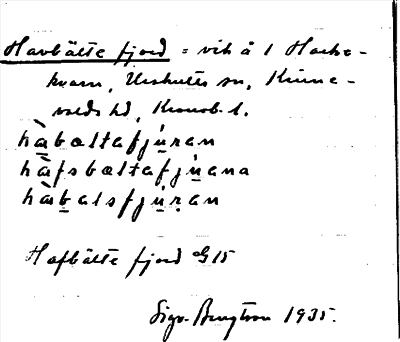 Havbältefjord = vik å l Hacke-
kvarn, Urshults sn, Kinne-
valds hd, Kronob. l.
hàbæltafjúran
hàfsbæltafjúana
hàbalsfjúran
Hafbälte fjord G15
Sigv. Bengtson 1935.